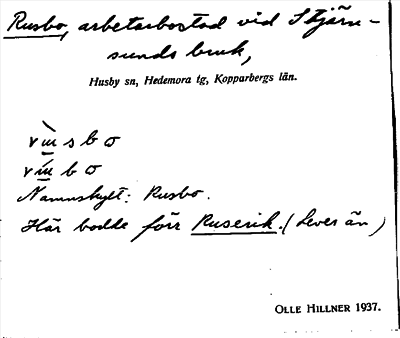 Rusbo, arbetarbostad vid Stjärn-
sunds bruk,
Husby sn, Hedemora tg, Kopparbergs län.
Namnskylt: Rusbo.
Här bodde förr Ruserik. (Lever än)
OLLE HILLNER 1937.